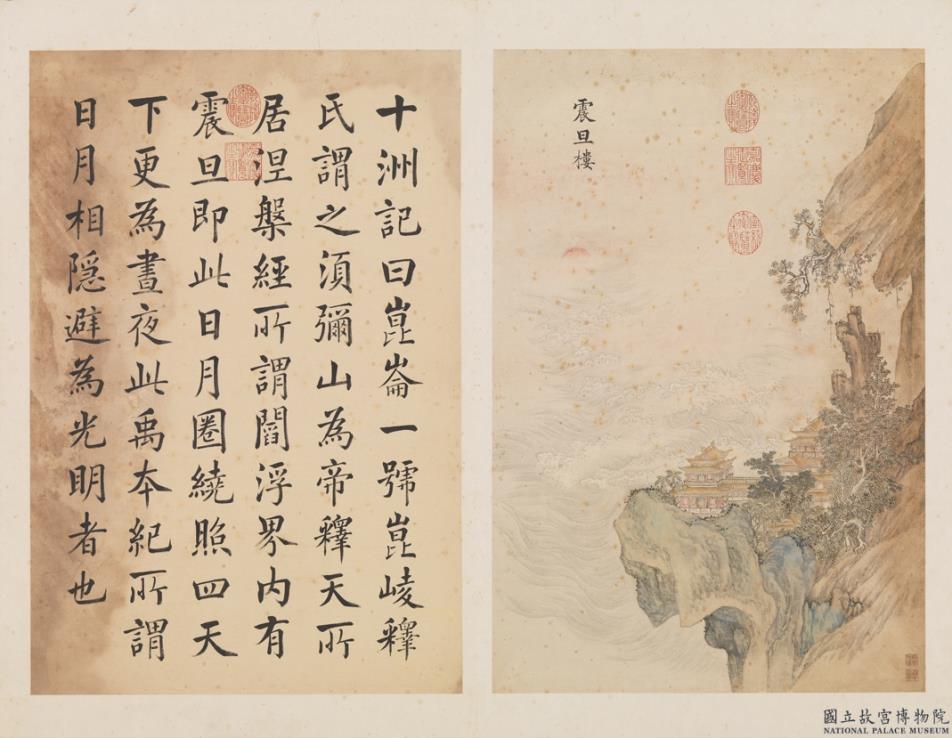 震旦樓
十洲記曰崑崙一號崑崚釋
氏謂之須彌山為帝釋天所
居涅槃經所謂閻浮界内有
震旦即此日月圈繞照四天
下更為晝夜此禹本紀所謂
日月相隱避為光明者也
國立故宮博物院
NATIONAL PALACE MUSEUM